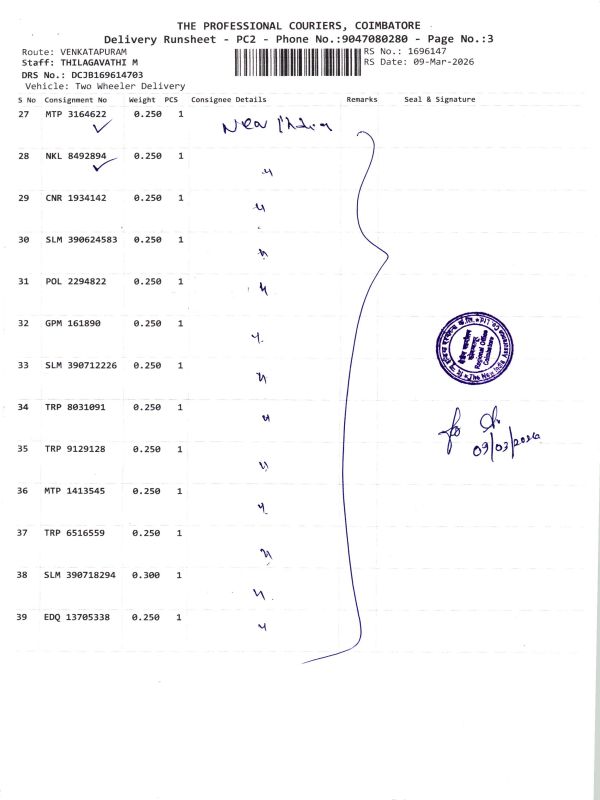 THE PROFESSIONAL COURIERS, COIMBATORE
Delivery Runsheet - PC2 - Phone No.:9047080280 - Page No.:3
Route: VENKATAPURAM
RS No.: 1696147
Staff: THILAGAVATHI M
RS Date: 09-Mar-2026
DRS No.: DCJB169614703
Vehicle: Two Wheeler Delivery
S No Consignment No Weight PCS Consignee Details Remarks Seal & Signature
27 MTP 3164622 0.250 1 New India
28 NKL 8492894 0.250 1 〃
29 CNR 1934142 0.250 1 〃
30 SLM 390624583 0.250 1 〃
31 POL 2294822 0.250 1 〃
32 GPM 161890 0.250 1 〃
33 SLM 390712226 0.250 1 〃
34 TRP 8031091 0.250 1 〃
35 TRP 9129128 0.250 1 〃
36 MTP 1413545 0.250 1 〃
37 TRP 6516559 0.250 1 〃
38 SLM 390718294 0.300 1 〃
39 EDQ 13705338 0.250 1 〃
Regional Office
Coimbatore
The New India
09/03/2026